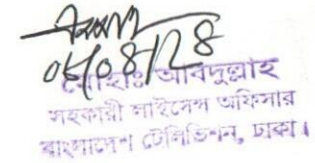 06/08/28
মোহাঃ আবিদুল্লাহ
সহকারী লাইসেন্স অফিসার
বাংলাদেশ টেলিভিশন, ঢাকা।